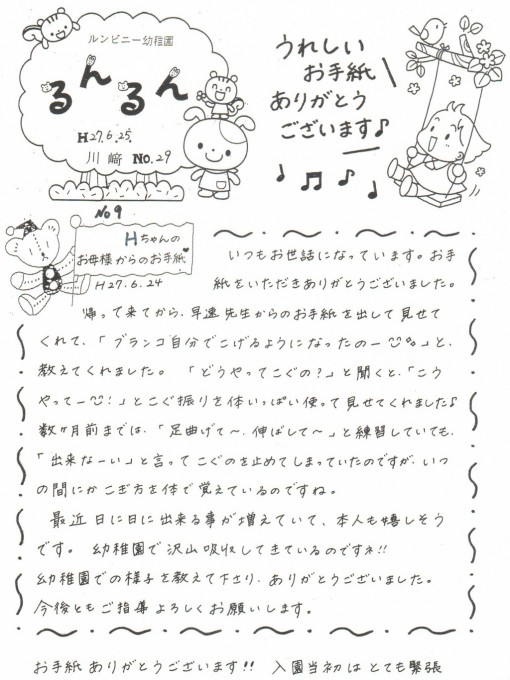 ルンビニー幼稚園
るんるん
H27.6.25.
川﨑 NO.29
うれしい
お手紙
ありがとう
ございます♪
No 9
Hちゃんの
お母様からのお手紙
H27.6.24
いつもお世話になっています。お手
紙をいただきありがとうございました。
帰って来てから、早速先生からのお手紙を出して見せて
くれて、「ブランコ自分でこげるようになったのー」と、
教えてくれました。「どうやってこぐの?」と聞くと、「こう
やってー!」とこぐ振りを体いっぱい使って見せてくれました♪
数ヶ月前までは、「足曲げて〜、伸ばして〜」と練習していても、
「出来なーい」と言ってこぐのを止めてしまっていたのですが、いつ
の間にかこぎ方を体で覚えているのですね。
最近日に日に出来る事が増えていて、本人も嬉しそう
です。幼稚園で沢山吸収してきているのですネ!!
幼稚園での様子を教えて下さり、ありがとうございました。
今後ともご指導よろしくお願いします。
お手紙ありがとうございます!! 入園当初はとても緊張